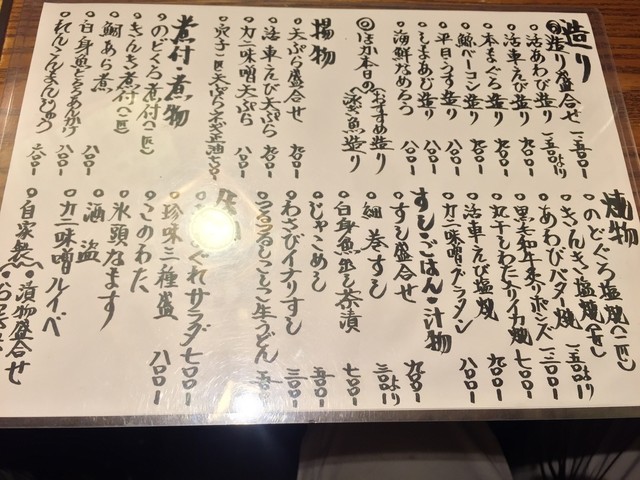 造り
◎造り盛合せ 二、五〇〇
○活あわび造り 一、五〇〇より
○活車えび造り 九〇〇
○本まぐろ造り
○鯨ベーコン造り
○平目うす造り 八〇〇
○しまあじ造り 八〇〇
○海鮮なめろう 八〇〇
◎ほか本日の(おすすめ造り
(泳ぎ魚造り
揚物
○天ぷら盛合せ 九〇〇
○活車えび天ぷら 九〇〇
○カニ味噌天ぷら 八〇〇
○穴子一匹天ぷら
煮付・煮物
○のどぐろ煮付(一匹)
○きんき煮付(一匹)
○鯛あら煮
○白身魚とろろあんかけ 八〇〇
○れんこんまんじゅう 六〇〇
焼物
○のどぐろ塩焼(一匹)
○きんき塩焼
○あわびバター焼 一、五〇〇より
○黒毛和牛炙りポンズ 一、三〇〇
○丸干しわた入りイカ焼 七〇〇
○活車えび塩焼 九〇〇
○カニ味噌グラタン 八〇〇
すし・ごはん・汁物
○すし盛合せ 九〇〇
○細巻すし 三〇〇より
○白身魚だし茶漬 七〇〇
○じゃこめし 五〇〇
○わさびイナリすし 三〇〇
○つるつるしこしこ生うどん
ぐれサラダ 七〇〇
○珍味三種盛 八〇〇
○このわた
○氷頭なます
○酒盗
○カニ味噌ルイベ
○自家製・漬物盛合せ